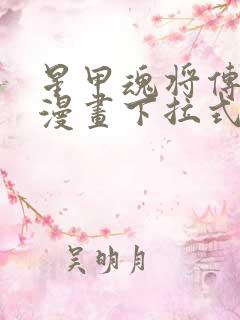 星甲魂将傳
漫畫下拉式
吴明月